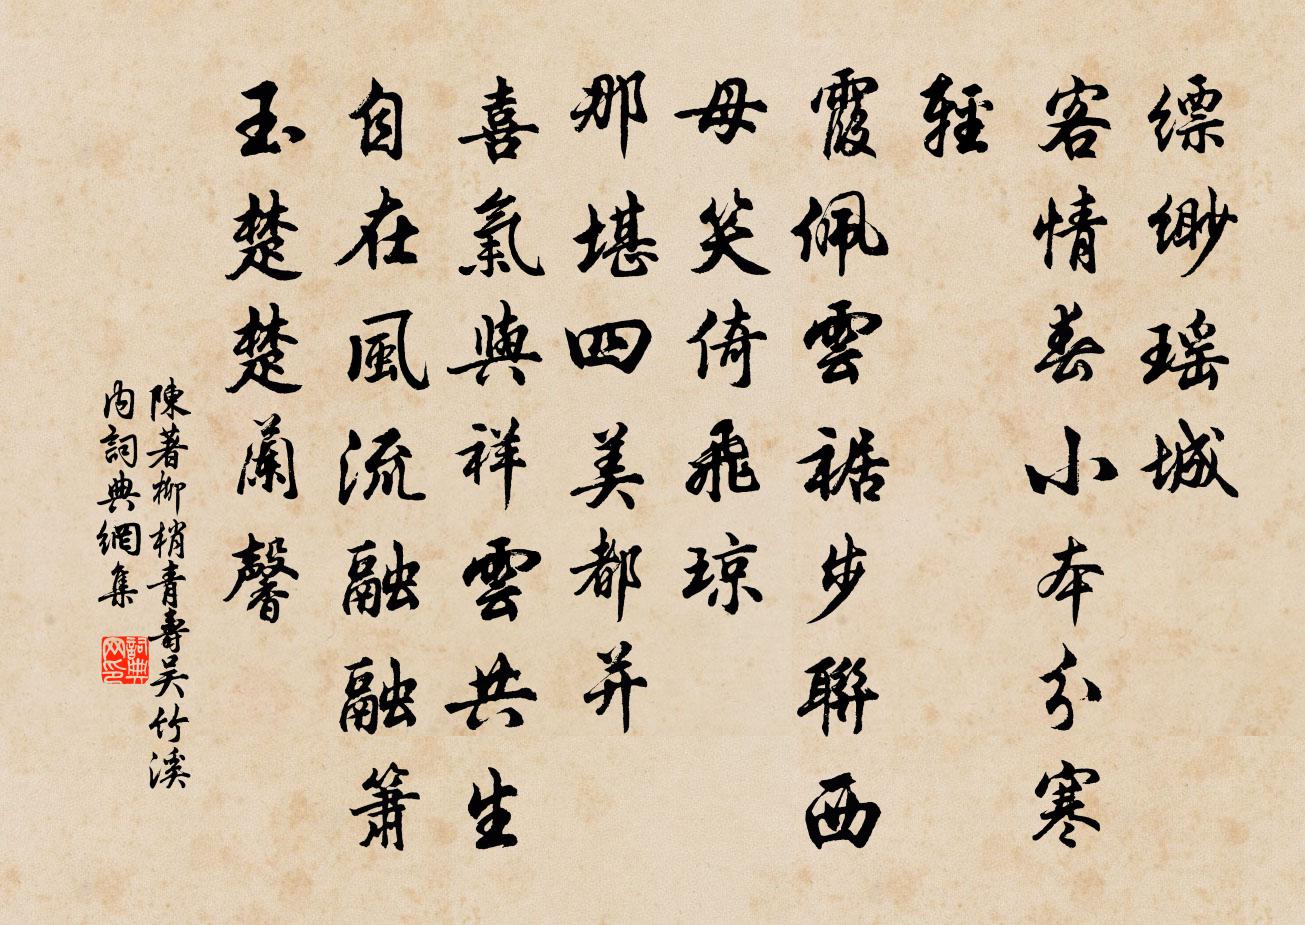 缥緲瑶城
客情春小本分寒
輕
霞佩雲裾步聯西
母笑倚飛琼
那堪四美都并
喜氣與祥雲共生
自在風流融融簫
玉楚楚蘭馨
陳著柳梢青壽吴竹溪
内詞典網集
詞典网印